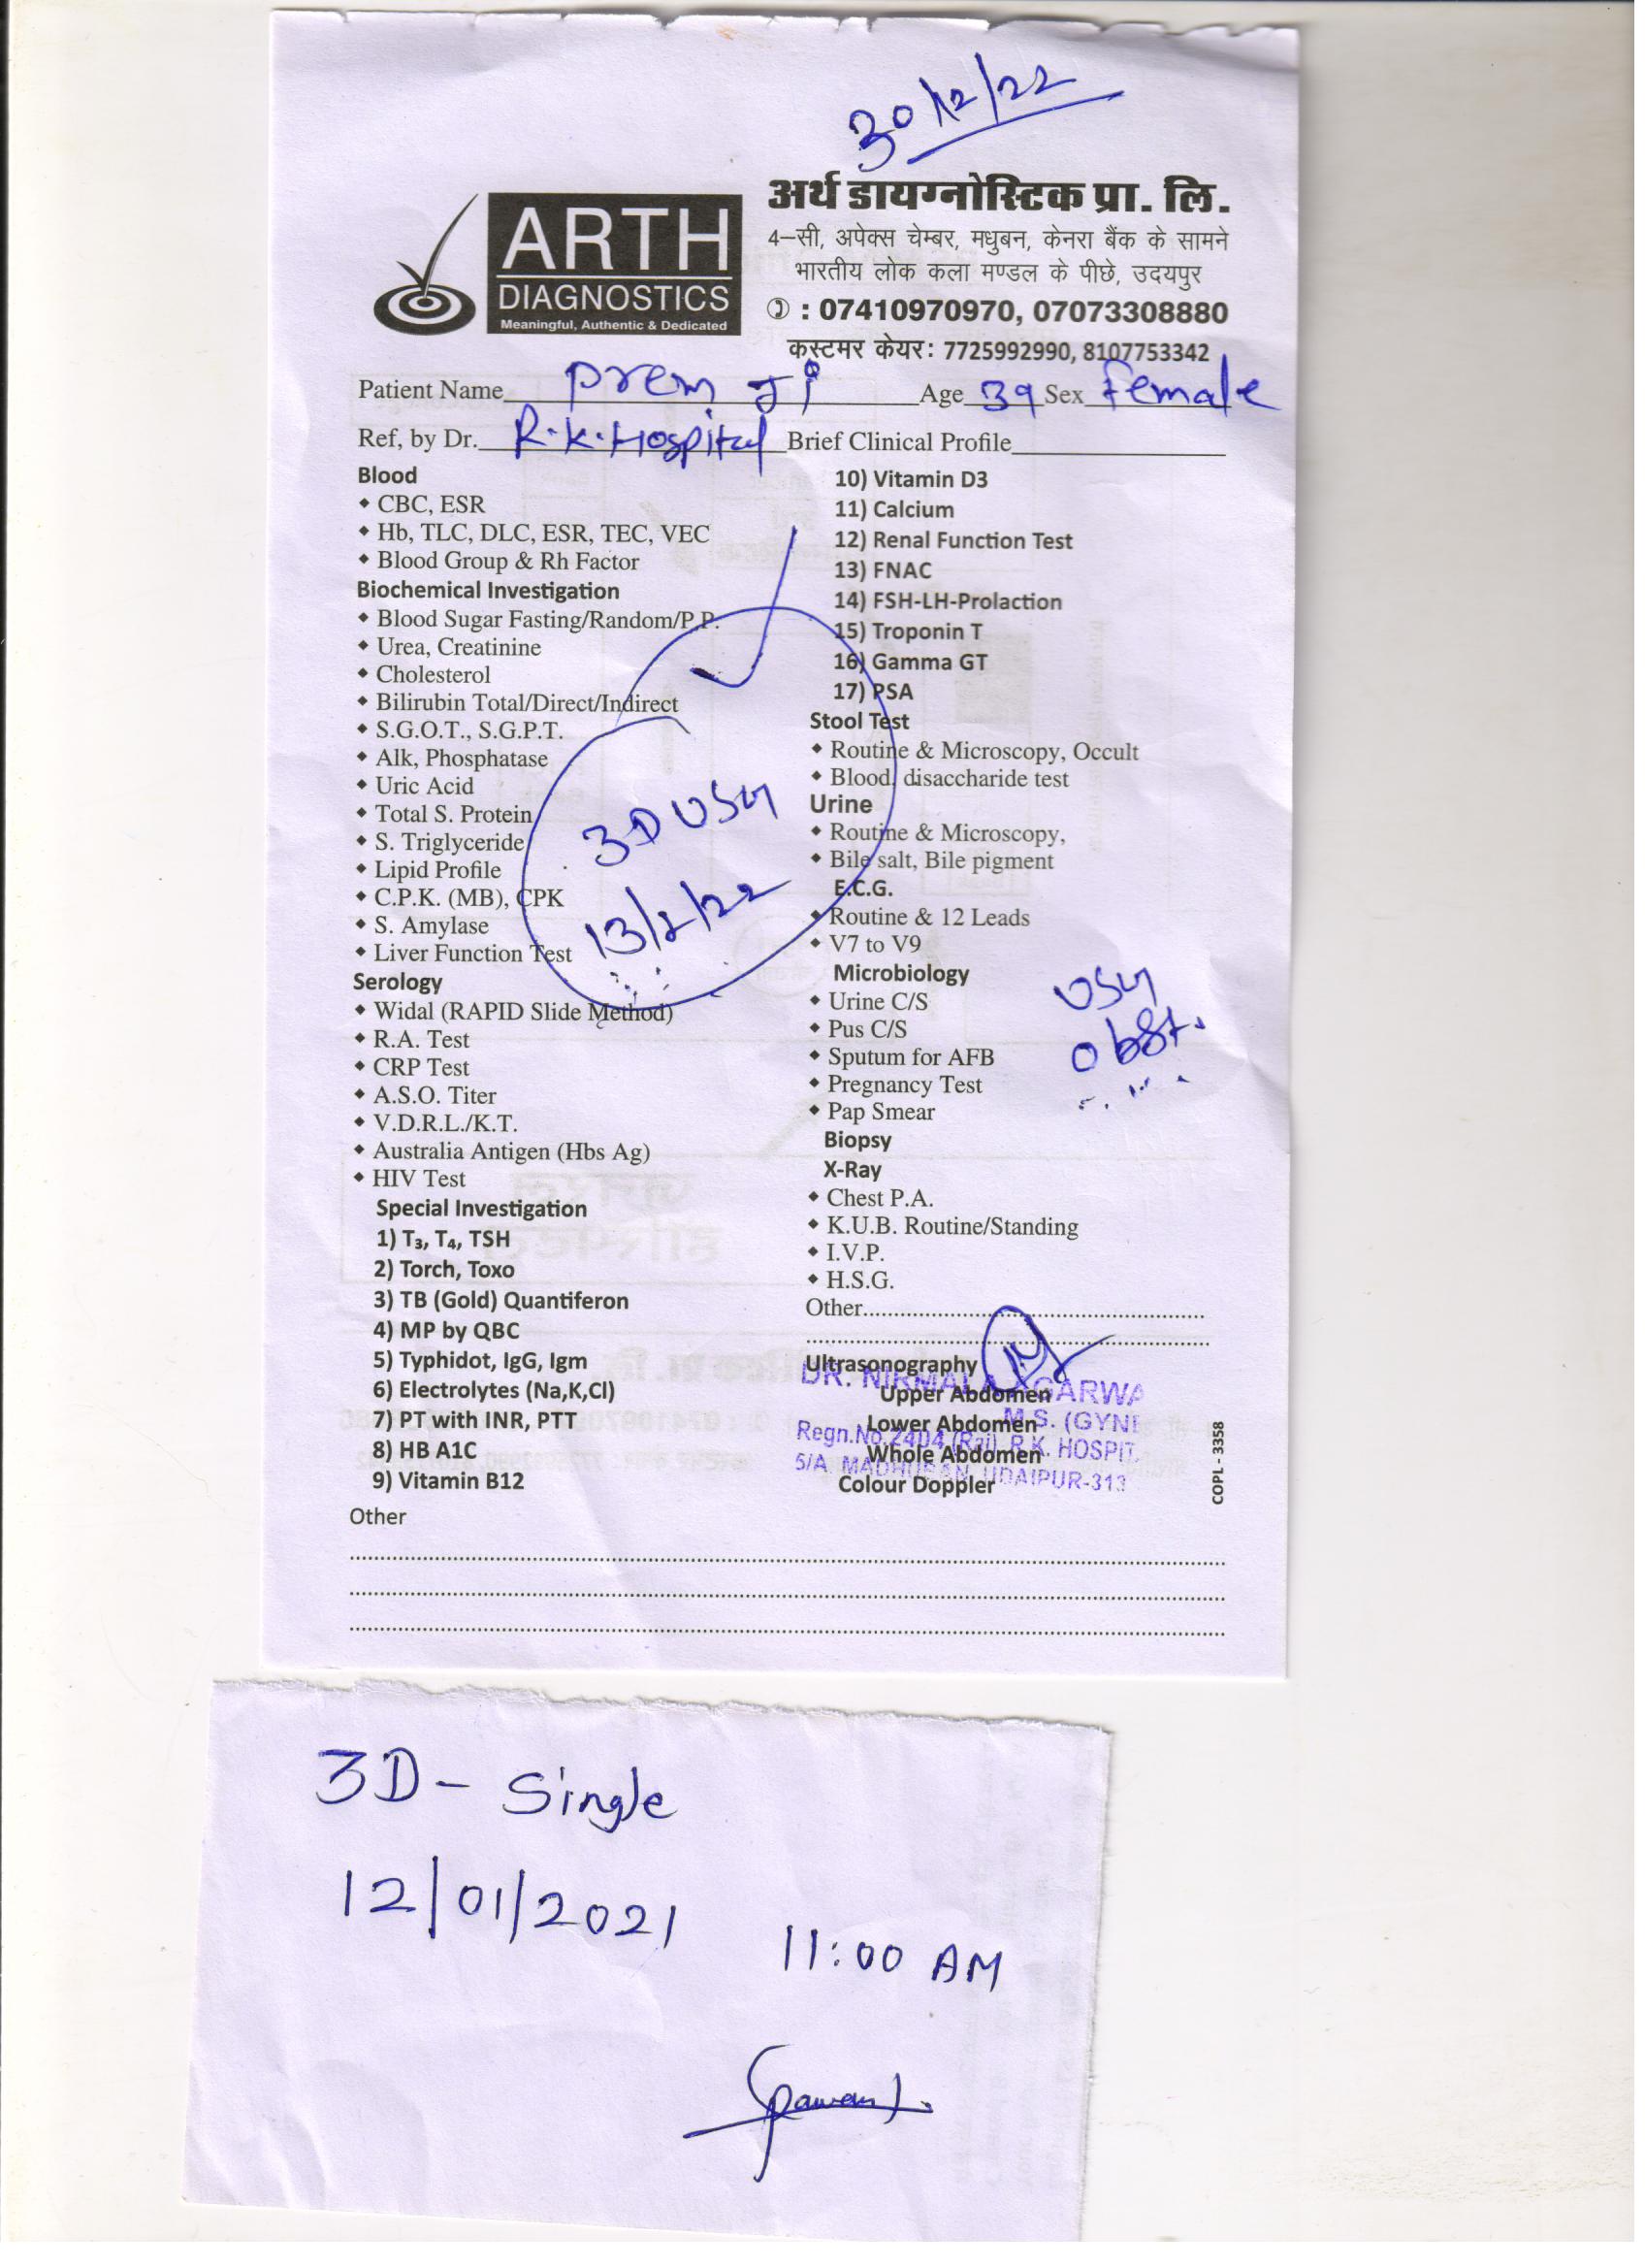 30/12/22
ARTH
DIAGNOSTICS
Meaningful, Authentic & Dedicated
अर्थ डायग्नोस्टिक प्रा. लि.
4–सी, अपेक्स चेम्बर, मधुबन, केनरा बैंक के सामने
भारतीय लोक कला मण्डल के पीछे, उदयपुर
: 07410970970, 07073308880
कस्टमर केयर: 7725992990, 8107753342
Patient Name Prem Ji Age 39 Sex Female
Ref, by Dr. R.K. Hospital Brief Clinical Profile
Blood
CBC, ESR
Hb, TLC, DLC, ESR, TEC, VEC
Blood Group & Rh Factor
Biochemical Investigation
Blood Sugar Fasting/Random/P.P.
Urea, Creatinine
Cholesterol
Bilirubin Total/Direct/Indirect
S.G.O.T., S.G.P.T.
Alk, Phosphatase
Uric Acid
Total S. Protein
S. Triglyceride
Lipid Profile
C.P.K. (MB), CPK
S. Amylase
Liver Function Test
3D USG
Serology
Widal (RAPID Slide Method)
R.A. Test
CRP Test
A.S.O. Titer
V.D.R.L./K.T.
Australia Antigen (Hbs Ag)
HIV Test
Special Investigation
1) T₃, T₄, TSH
2) Torch, Toxo
3) TB (Gold) Quantiferon
4) MP by QBC
5) Typhidot, IgG, Igm
6) Electrolytes (Na,K,Cl)
7) PT with INR, PTT
8) HB A1C
9) Vitamin B12
10) Vitamin D3
11) Calcium
12) Renal Function Test
13) FNAC
14) FSH-LH-Prolaction
15) Troponin T
16) Gamma GT
17) PSA
Stool Test
Routine & Microscopy, Occult
Blood, disaccharide test
Urine
Routine & Microscopy,
Bile salt, Bile pigment
E.C.G.
Routine & 12 Leads
V7 to V9
Microbiology
Urine C/S
Pus C/S
Sputum for AFB
Pregnancy Test
Pap Smear
USG
Obst.
Biopsy
X-Ray
Chest P.A.
K.U.B. Routine/Standing
I.V.P.
H.S.G.
Other
Ultrasonography
Upper Abdomen
Lower Abdomen
Whole Abdomen
Colour Doppler
DR. NIRMALA AGARWA
M.S. (GYNE
Regn.No.2404 (Raj) R.K. HOSPIT
5/A, MADHUBAN, UDAIPUR-313
COPL - 3358
Other
3D – Single
12/01/2021
11:00 AM